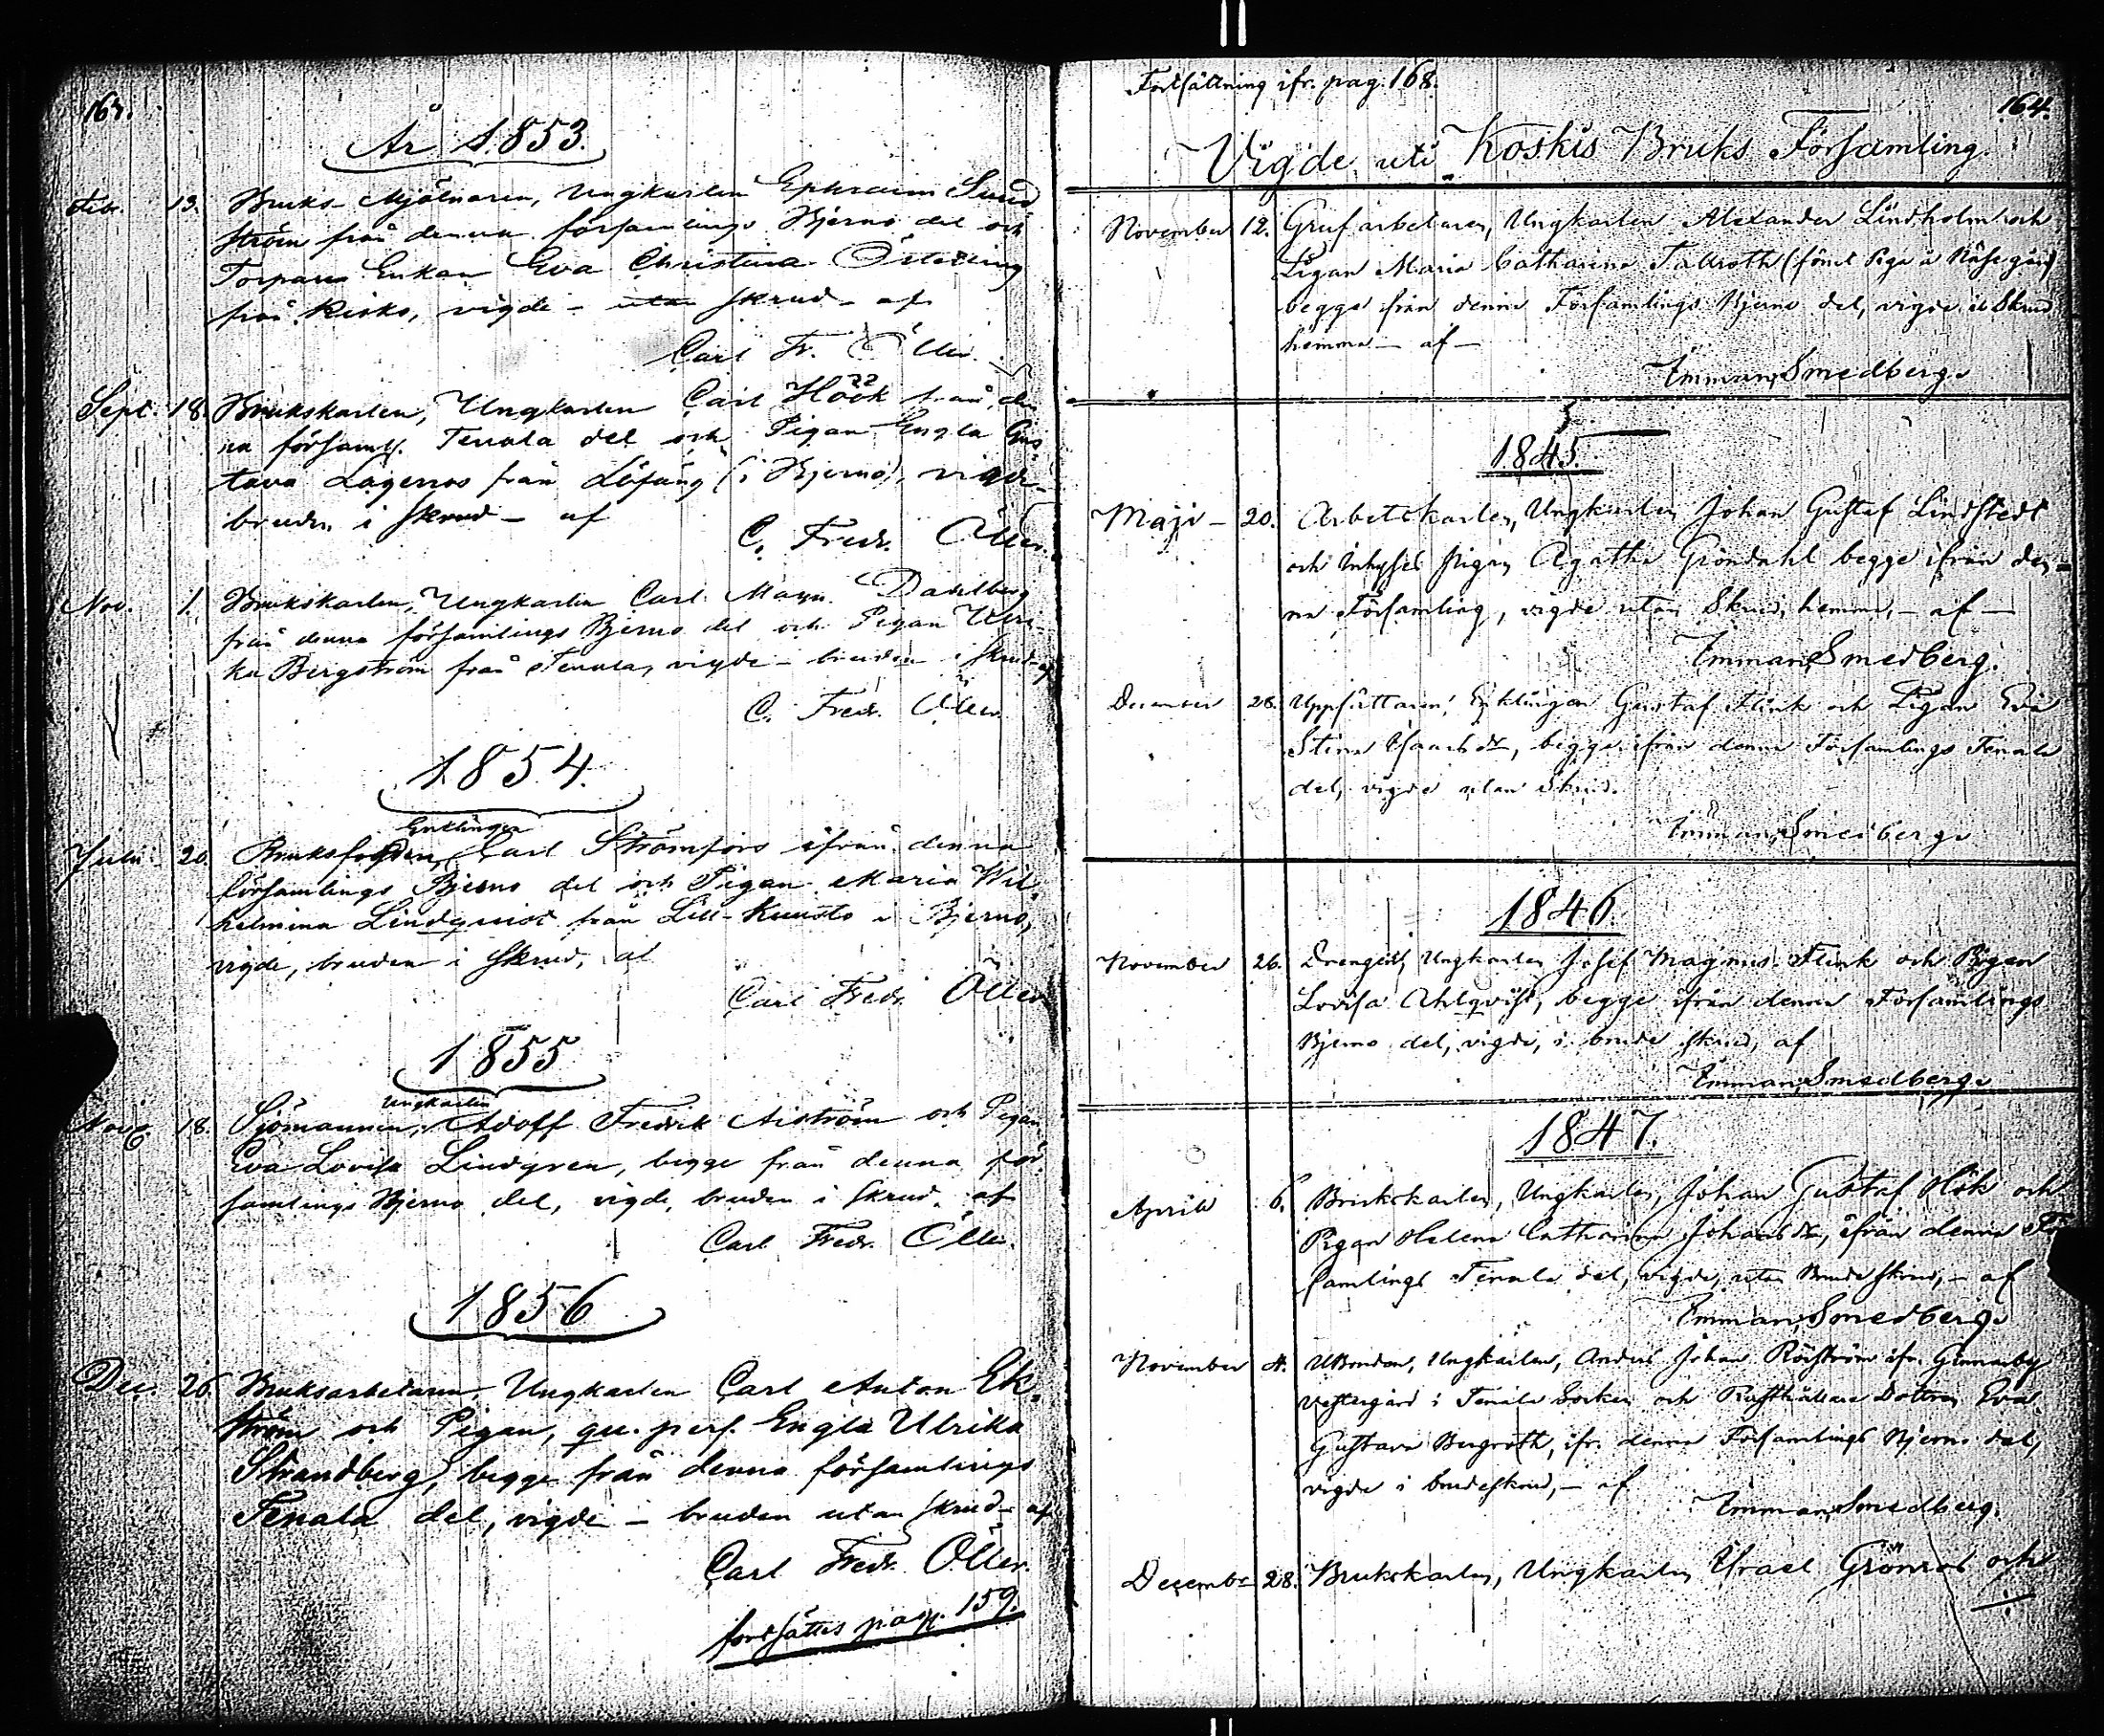 167.
År 1853.
Feb. 13. Bruks-Mjölnaren, Ungkarlen Ephraim Sund
ström från denna församlings Bjerno del och
Torpare Enkan Eva Christina Österling
från Kisko, vigde - utan skrud - af
Carl Fr. Öller.
Sept. 18. Brukskarlen, Ungkarlen Carl Höök från den
na församl. Tenala del och Pigan Engla Gus
tava Lagerros från Löfäng (i Bjerno), vigde -
bruden i skrud - af
C. Fredr. Öller.
Nov. 1. Brukskarlen, Ungkarlen Carl Magn. Dahlberg
från denna församlings Bjerno del och Pigan Ulri-
ka Bergström från Tenala, vigde - bruden i skrud - af
C. Fredr. Öller.
1854.
Enklingen
Julii 20. Bruksfogden, Carl Strömfors ifrån denna
församlings Bjerno del och Pigan Maria Wil-
helmina Lindqvist från Lill-Kuusto i Bjerno,
vigde, bruden i skrud, af
Carl Fredr. Öller
1855
Ungkarlen
Nov. 18. Sjömannen, Adolf Fredrik Aiström och Pigan
Eva Lovisa Lindgren, begge från denna för-
samlings Bjerno del, vigde, bruden i skrud, af
Carl Fredr. Öller.
1856
Dec. 26. Bruksarbetaren, Ungkarlen Carl Anton Ek-
ström och Pigan, qu. pers. Engla Ulrika
Strandberg, begge från denna församlings
Tenala del, vigde - bruden utan skrud - af
Carl Fredr. Öller.
fortsättes pag. 159.
Fortsättning ifr. pag. 168.
164.
Vigde uti Koskis Bruks Församling.
November 12. Grufarbetaren, Ungkarlen Alexander Lindholm och
Pigan Maria Catharina Tallroth (förut Piga å Näse gård)
begge från denna Församlings Bjerno del, vigde i Skrud
hemma - af -
Emman. Smedberg.
1845.
Maji - 20. Arbetskarlen, Ungkarlen Johan Gustaf Lindstedt
och Inhyses pigan Agatha Gröndahl begge ifrån den-
na Församling, vigde utan Skrud, hemma, - af -
Emman. Smedberg.
December 26. Uppsättaren, Enklingen Gustaf Flink och Pigan Eva
Stina Isaacs dr, begge ifrån denna Församlings Tenala
del, vigde utan Skrud.
Emman. Smedberg.
1846.
November 26. Drengen, Ungkarlen Josef Magnus Flink och Pigan
Lovisa Ahlqvist, begge ifrån denna Församlings
Bjerno del, vigde, i brude skrud, af
Emman. Smedberg.
1847.
Aprill 6. Brukskarlen, Ungkarlen, Johan Gustaf Hök och
Pigan Helena Catharina Johans dr, ifrån denna För
samlings Tenala del, vigde, utan Brudeskrud, - af
Emman. Smedberg.
November 4. Ungkarlen, Anders Johan Röström ifr. Gennarby
Vestergård i Tenala Socken och Rusthållare Dottren Eva
Gustava Bergroth, ifr. denna Församlings Bjerno del,
vigde i brudeskrud, - af
Emman. Smedberg.
December 28. Brukskarlen, Ungkarlen Israel Grönros och